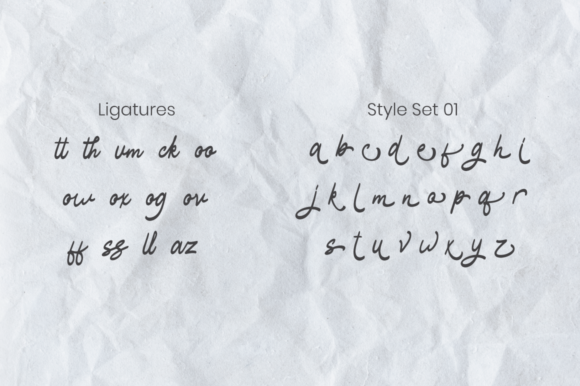 Ligatures
tt th vm ck oo
ow ox og ov
ff ss ll az
Style Set 01
a b c d e f g h i
j k l m n o p q r
s t u v w x y z